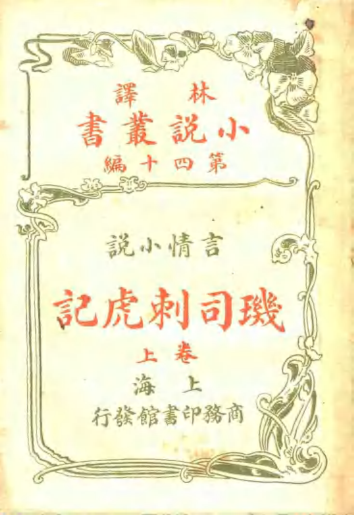 林譯
小說叢書
第四十編
言情小說
璣司刺虎記
卷上
上海
商務印書館發行